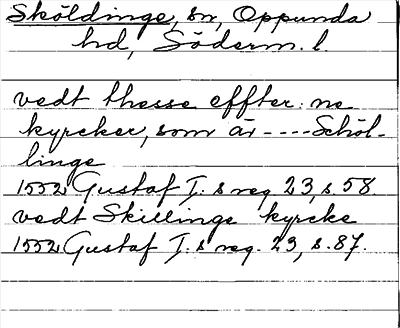 Sköldinge, sn, Oppunda
hd, Söderm. l.
vedt thesse effter: ne
kyrcker, som är ---- Schöl-
linge
1552 Gustaf I:s reg 23, s. 58
vedt Skillinge kyrcke
1552 Gustaf I:s reg. 23, s. 87.